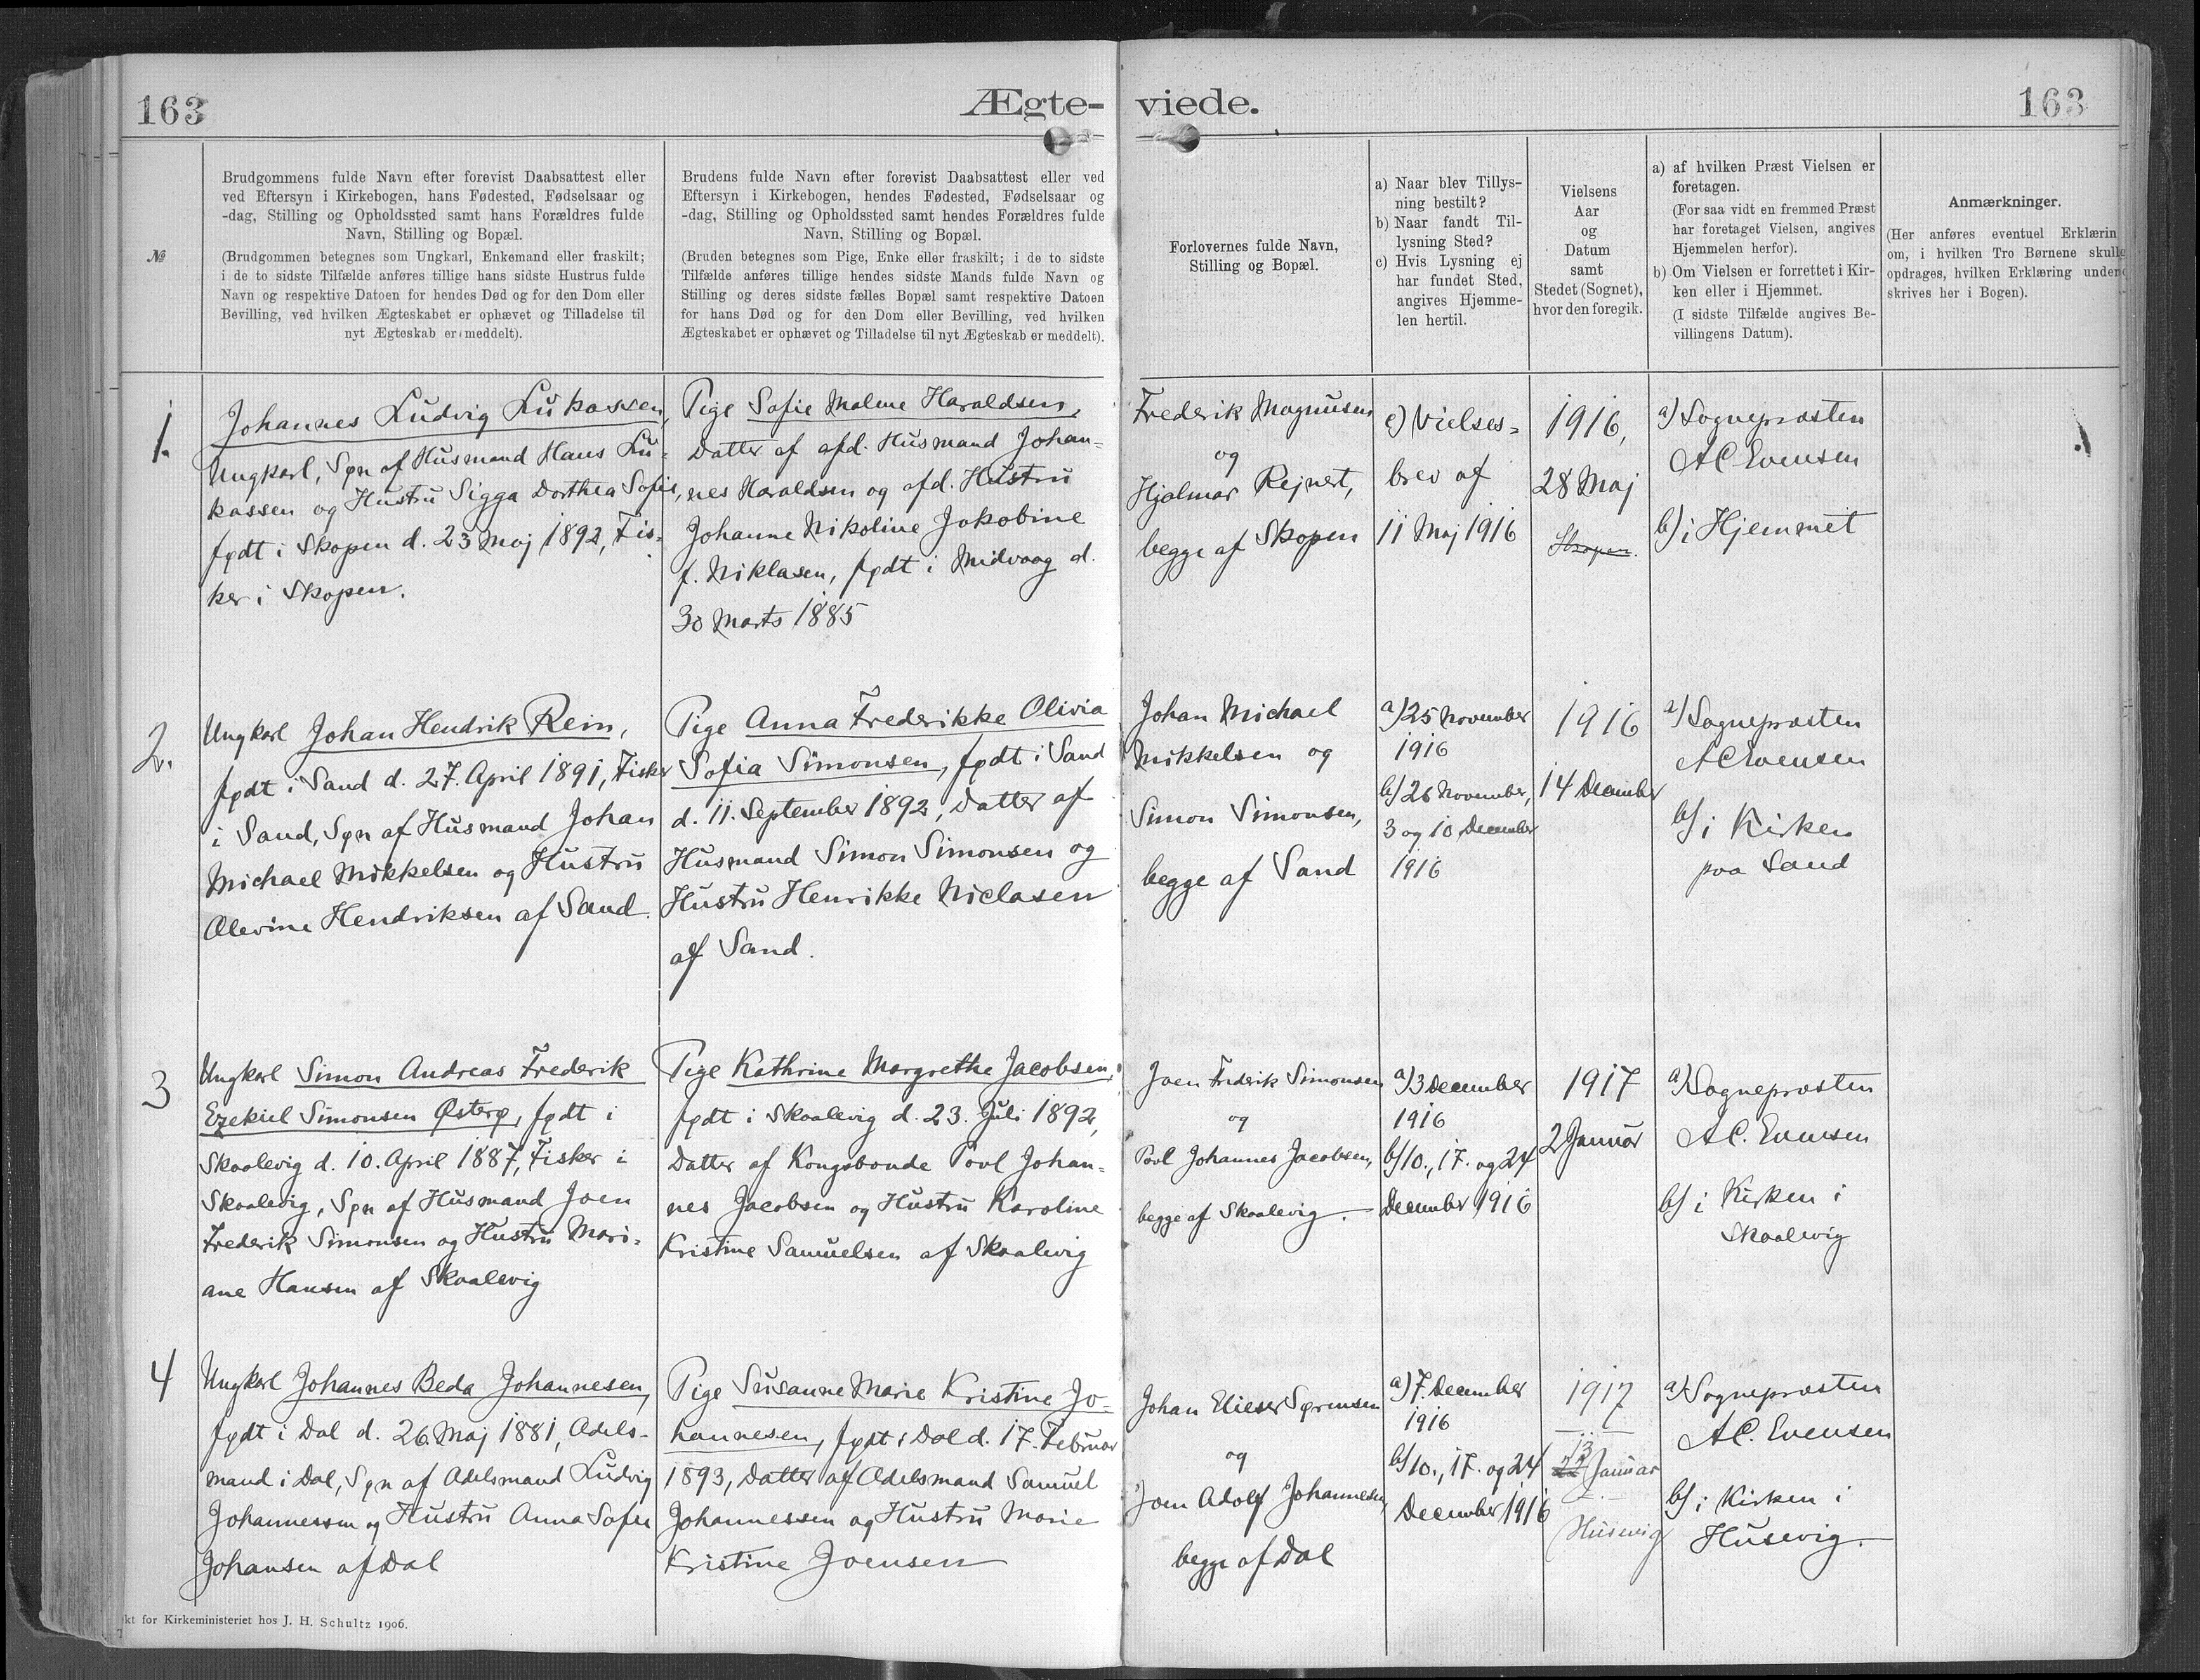 163
Ægte-
viede.
163
№
Brudgommens fulde Navn efter forevist Daabsattest eller
ved Eftersyn i Kirkebogen, hans Fødested, Fødselsaar og
-dag, Stilling og Opholdssted samt hans Forældres fulde
Navn, Stilling og Bopæl.
(Brudgommen betegnes som Ungkarl, Enkemand eller fraskilt;
i de to sidste Tilfælde anføres tillige hans sidste Hustrus fulde
Navn og respektive Datoen for hendes Død og for den Dom eller
Bevilling, ved hvilken Ægteskabet er ophævet og Tilladelse til
nyt Ægteskab er meddelt).
Brudens fulde Navn efter forevist Daabsattest eller ved
Eftersyn i Kirkebogen, hendes Fødested, Fødselsaar og
-dag, Stilling og Opholdssted samt hendes Forældres fulde
Navn, Stilling og Bopæl.
(Bruden betegnes som Pige, Enke eller fraskilt; i de to sidste
Tilfælde anføres tillige hendes sidste Mands fulde Navn og
Stilling og deres sidste fælles Bopæl samt respektive Datoen
for hans Død og for den Dom eller Bevilling, ved hvilken
Ægteskabet er ophævet og Tilladelse til nyt Ægteskab er meddelt).
Forlovernes fulde Navn,
Stilling og Bopæl.
a) Naar blev Tillys-
ning bestilt?
b) Naar fandt Til-
lysning Sted?
c) Hvis Lysning ej
har fundet Sted,
angives Hjemme-
len hertil.
Vielsens
Aar
og
Datum
samt
Stedet (Sognet),
hvor den foregik.
a) af hvilken Præst Vielsen er
foretagen.
(For saa vidt en fremmed Præst
har foretaget Vielsen, angives
Hjemmelen herfor).
b) Om Vielsen er forrettet i Kir-
ken eller i Hjemmet.
(I sidste Tilfælde angives Be-
villingens Datum).
Anmærkninger.
(Her anføres eventuel Erklærin
om, i hvilken Tro Børnene skulle
opdrages, hvilken Erklæring under
skrives her i Bogen).
1.
Johannes Ludvig Lukassen,
Ungkarl, Søn af Husmand Hans Lu-
kassen og Hustru Sigga Dorthea Sofie,
født i Skopen d. 23 Maj 1892, Fis-
ker i Skopen.
Pige Sofie Malene Haraldsen,
Datter af afd. Husmand Johan-
nes Haraldsen og afd. Hustru
Johanne Nikoline Jakobine
f. Niklasen, født i Midvaag d.
30 Marts 1885
Frederik Magnusen
og
Hjalmar Rejnert,
begge af Skopen
c) Vielses-
brev af
11 Maj 1916
1916,
28 Maj
Skopen.
a) Sognepræsten
AC Evensen
b) i Hjemmet
2.
Ungkarl Johan Hendrik Rein,
født i Sand d. 27. April 1891, Fisker
i Sand, Søn af Husmand Johan
Michael Mikkelsen og Hustru
Olevine Hendriksen af Sand.
Pige Anna Frederikke Olivia
Sofia Simonsen, født i Sand
d. 11. September 1892, Datter af
Husmand Simon Simonsen og
Hustru Henrikke Niclasen
af Sand.
Johan Michael
Mikkelsen og
Simon Simonsen,
begge af Sand
a) 25 November
1916
b) 26 November,
3 og 10 December
1916
1916
14 December
a) Sognepræsten
AC Evensen
b) i Kirken
paa Sand
3
Ungkarl Simon Andreas Frederik
Ezekiel Simonsen Østerø, født i
Skaalevig d. 10. April 1887, Fisker i
Skaalevig, Søn af Husmand Joen
Frederik Simonsen og Hustru Mari-
ane Hansen af Skaalevig
Pige Kathrine Margrethe Jacobsen,
født i Skaalevig d. 23. Juli 1892,
Datter af Kongsbonde Povl Johan-
nes Jacobsen og Hustru Karoline
Kristine Samuelsen af Skaalevig
Joen Frederik Simonsen
og
Povl Johannes Jacobsen,
begge af Skaalevig.
a) 3 December
1916
b) 10., 17. og 24
December 1916
1917
2 Januar
a) Sognepræsten
AC. Evensen
b) i Kirken i
Skaalevig
4
Ungkarl Johannes Beda Johannesen,
født i Dal d. 26. Maj 1881, Adels-
mand i Dal, Søn af Adelsmand Ludvig
Johannessen og Hustru Anna Sofie
Johansen af Dal
Pige Susanne Marie Kristine Jo-
hannesen, født i Dal d. 17. Februar
1893, Datter af Adelsmand Samuel
Johannessen og Hustru Marie
Kristine Joensen
Johan Elieser Sørensen
og
Joen Adolf Johannesen,
begge af Dal
a) 7. December
1916
b) 10., 17. og 24
December 1916
1917
13 Januar
Husevig
a) Sognepræsten
AC. Evensen
b) i Kirken i
Husevig.
kt for Kirkeministeriet hos J. H. Schultz 1906.